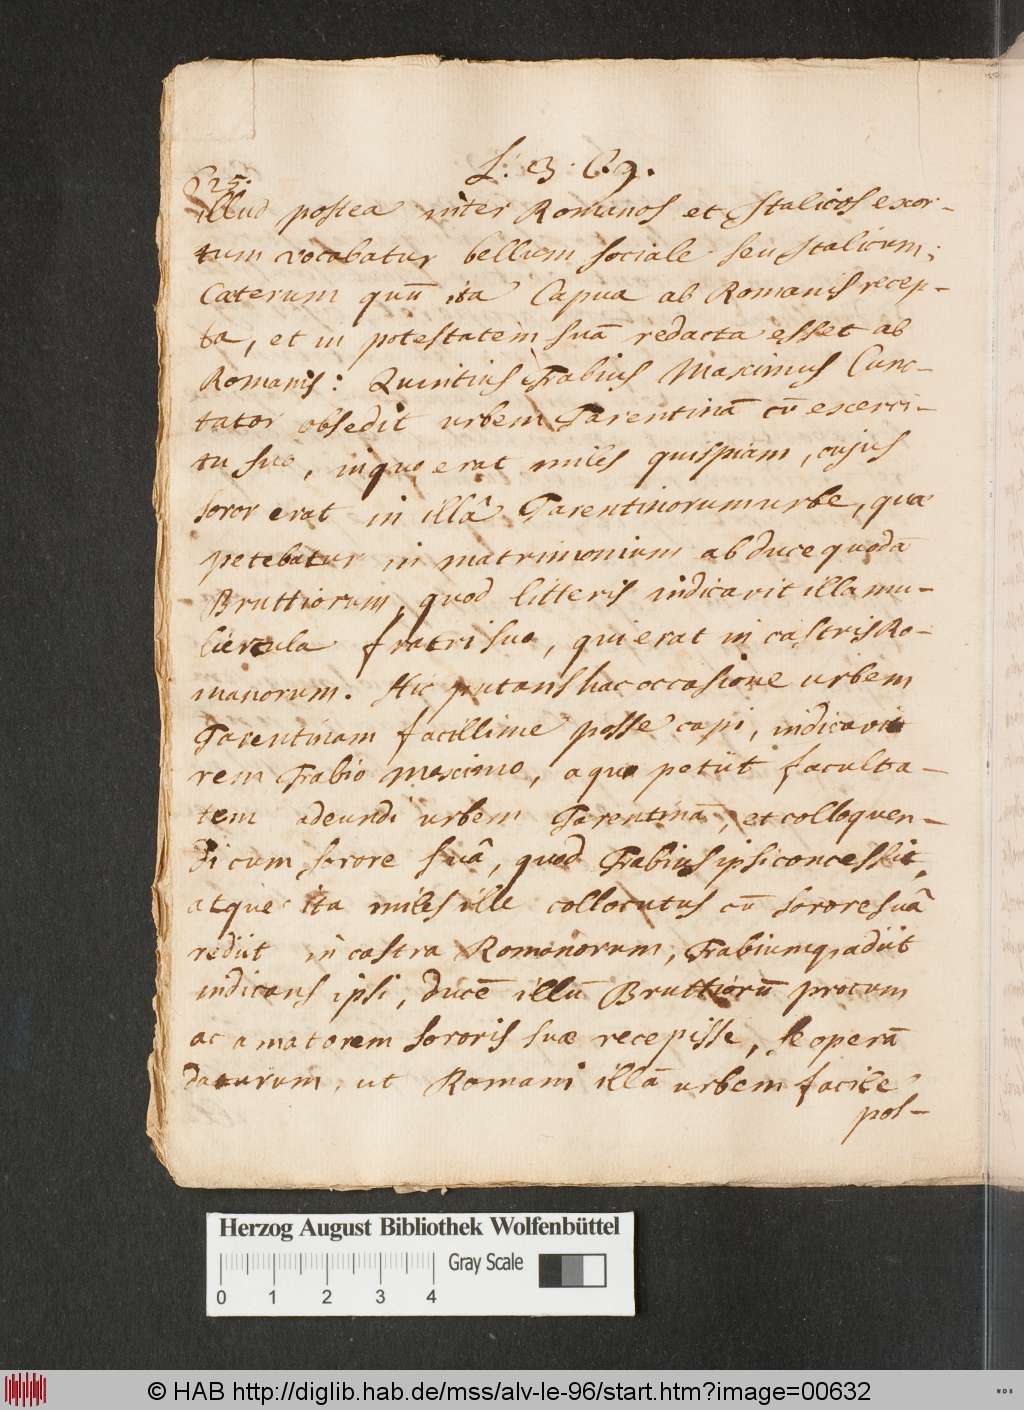 L: 3. C. 9.
625.
illud postea inter Romanos et Italicos exor-
tum vocabatur bellum sociale seu Italicum;
Cæterum quū ita Capua ab Romanis recep-
ta, et in potestatem suā redacta esset ab
Romanis: Quintius Fabius Maximus Cunc-
tator obsedit urbem Tarentinā cū exerci-
tu suo, in quo erat miles quispiam, cujus
soror erat in illâ Tarentinorum urbe, quæ
petebatur in matrimonium ab duce quodā
Bruttiorum, quod litteris indicavit illa mu-
liercula fratri suo, qui erat in castris Ro-
manorum. Hic putans hac occasione urbem
Tarentinam facillime posse capi, indicavit
rem Fabio Maximo, a quo petiit faculta-
tem adeundi urbem Tarentinā, et colloquen-
di cum sorore suâ, quod Fabius ipsi concessit,
atque ita miles ille collocutus cū sorore suâ
rediit in castra Romanorum, Fabiumq; adiit
indicans ipsi, ducē illū Bruttiorū procum
ac amatorem sororis suæ recepisse, se operā
daturum, ut Romani illā urbem facile
pos-
Herzog August Bibliothek Wolfenbüttel
Gray Scale
0 1 2 3 4
© HAB http://diglib.hab.de/mss/alv-le-96/start.htm?image=00632